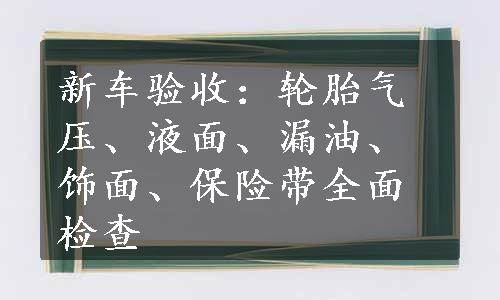 新车验收：轮胎气
压、液面、漏油、
饰面、保险带全面
检查